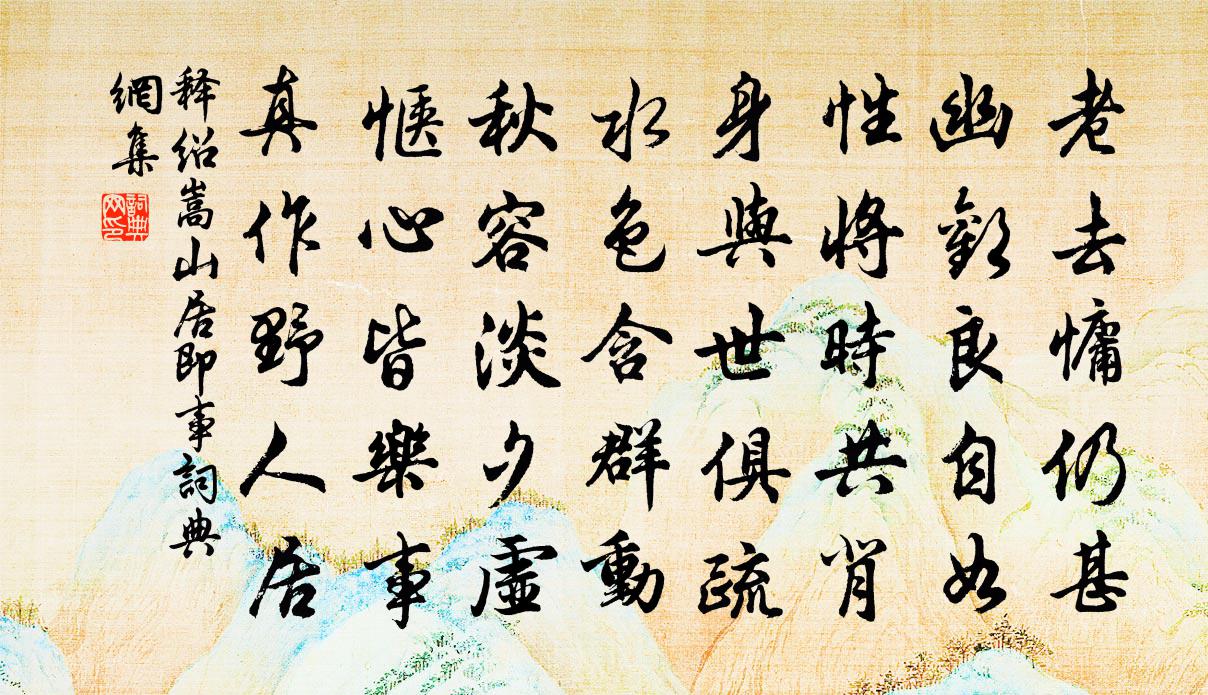 老去慵仍甚
幽歡良自如
性將時共背
身與世俱疏
水色含群動
秋容淡夕虛
愜心皆樂事
真作野人居
释紹嵩山居即事詞典
網集
詞典網印